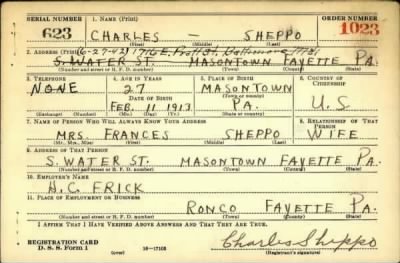 SERIAL NUMBER 1. NAME (Print) ORDER NUMBER
623 CHARLES – SHEPPO 1023
(First) (Middle) (Last)
2. ADDRESS (Print) (6-27-42) 1716 E. Pratt St. Baltimore, Md.
S. WATER ST. MASONTOWN FAYETTE PA.
(Number and street or R. F. D. number) (Town) (County) (State)
3. TELEPHONE 4. AGE IN YEARS 5. PLACE OF BIRTH 6. COUNTRY OF CITIZENSHIP
NONE 27 MASONTOWN
DATE OF BIRTH (Town or county)
FEB. 11 1913 PA. U.S
(Exchange) (Number) (Mo.) (Day) (Yr.) (State or country)
7. NAME OF PERSON WHO WILL ALWAYS KNOW YOUR ADDRESS 8. RELATIONSHIP OF THAT PERSON
MRS. FRANCES SHEPPO WIFE
(Mr., Mrs., Miss) (First) (Middle) (Last)
9. ADDRESS OF THAT PERSON
S. WATER ST. MASONTOWN FAYETTE PA.
(Number and street or R. F. D. number) (Town) (County) (State)
10. EMPLOYER'S NAME
H.C. FRICK
11. PLACE OF EMPLOYMENT OR BUSINESS
RONCO FAYETTE PA.
(Number and street or R. F. D. number) (Town) (County) (State)
I AFFIRM THAT I HAVE VERIFIED ABOVE ANSWERS AND THAT THEY ARE TRUE.
REGISTRATION CARD Charles Sheppo
D. S. S. Form 1 (over) 16—17105 (Registrant's signature)